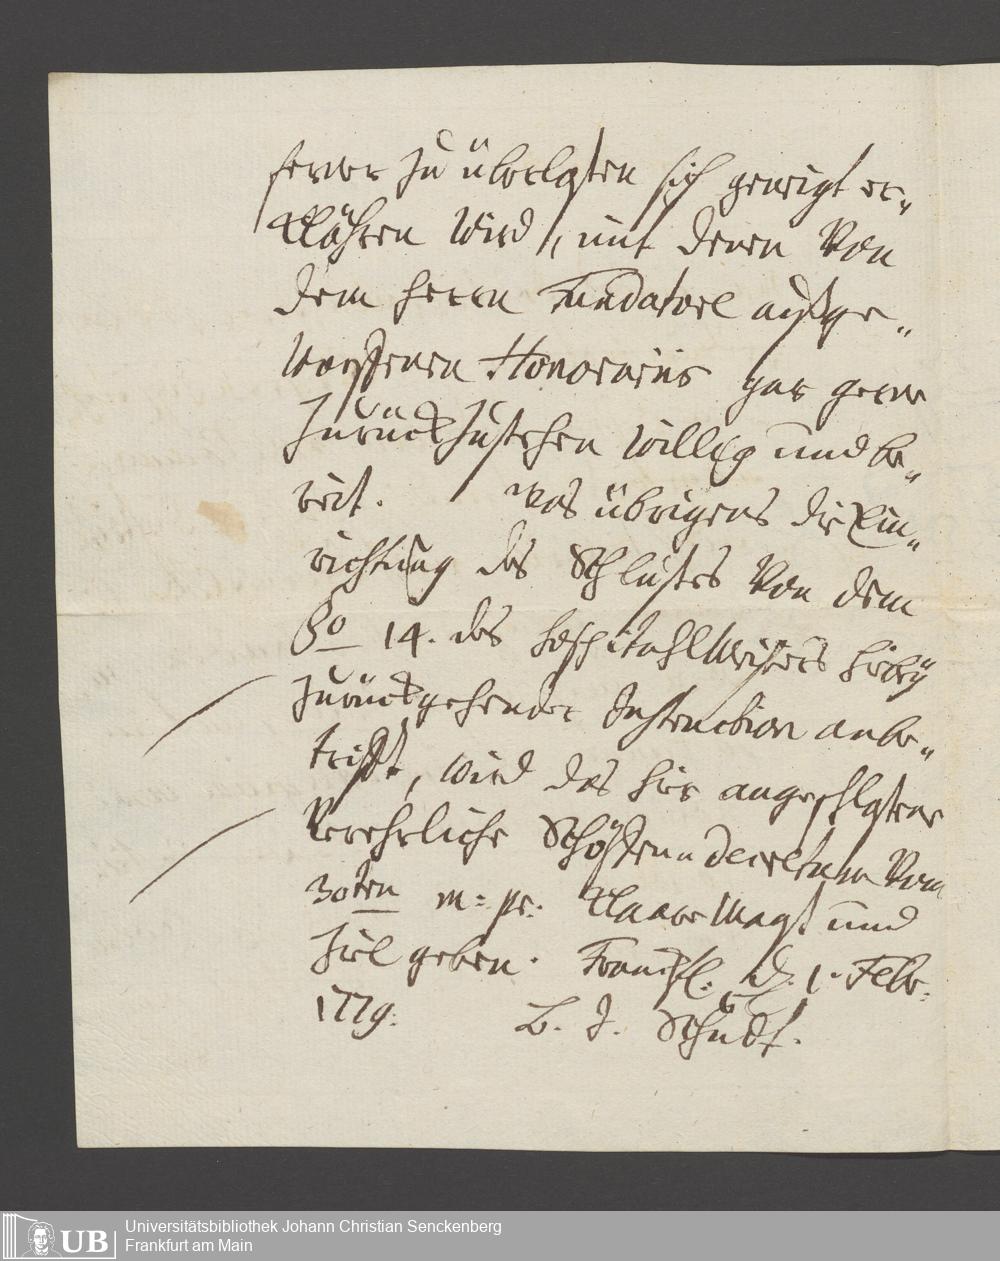 ferner zu überlaßen sich geneigt er-
klähren wird, mit denen von
dem Herrn Fundatore außge-
worffenen Honorariis gar gerne
zurückzustehen willig und be-
reit. Was übrigens die Ein-
richtung des Schlußes von dem
§o 14. des Hospitahlmeisters hiebey
zurückgehender Instruction anbe-
trifft, wird das hier angeschloßene
Verehrliche Schöffen Decretum vom
30ten m: pr: klaare Maaß und
Ziel geben. Franckf. d. 1. Febr.
1779. Schudt.
Universitätsbibliothek Johann Christian Senckenberg
Frankfurt am Main
UB